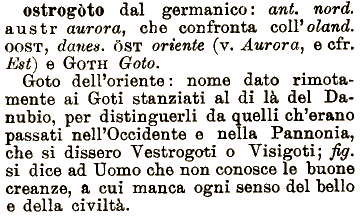 ostrogòto dal germanico: ant. nord.
austr aurora, che confronta coll'oland.
OOST, danes. ÖST oriente (v. Aurora, e cfr.
Est) e GOTH Goto.
Goto dell'oriente: nome dato rimota-
mente ai Goti stanziati al di là del Da-
nubio, per distinguerli da quelli ch'erano
passati nell'Occidente e nella Pannonia,
che si dissero Vestrogoti o Visigoti; fig.
si dice ad Uomo che non conosce le buone
creanze, a cui manca ogni senso del bello
e della civiltà.